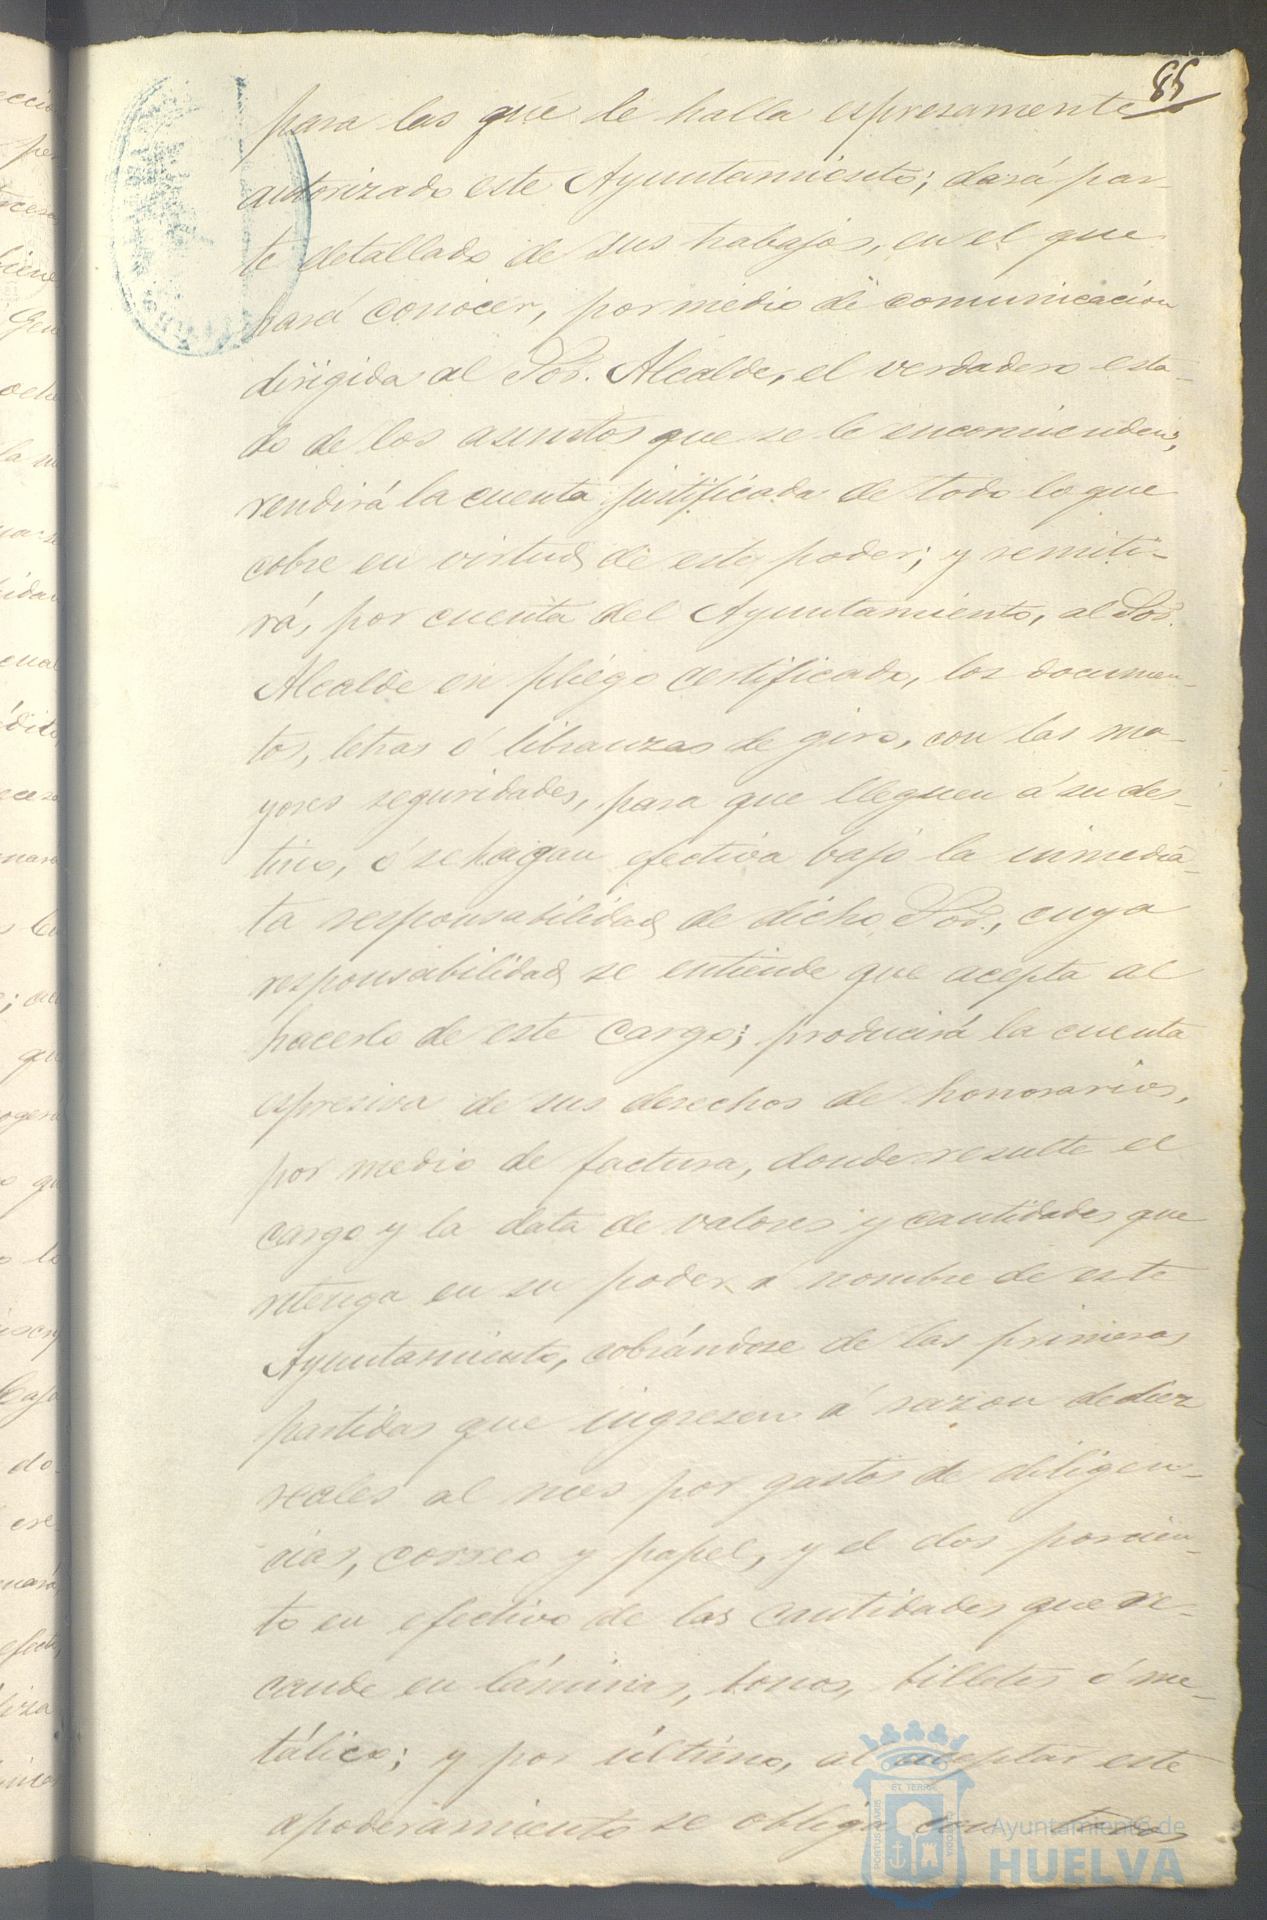 85
para las que le halla espresamente
autorizado este Ayuntamiento; dará par-
te detallado de sus trabajos, en el que
hará conocer, por medio de comunicacion
dirigida al Sor. Alcalde, el verdadero esta-
do de los asuntos que se le encomienden;
rendirá la cuenta justificada de todo lo que
cobre en virtud de este poder; y remiti-
rá, por cuenta del Ayuntamiento, al Sor.
Alcalde en pliego certificado, los documen-
tos, letras ó libranzas de giro, con las ma-
yores seguridades, para que lleguen á su des-
tino, ó se hagan efectiva bajo la inmedia-
ta responsabilidad de dicho Sor., cuya
responsabilidad se entiende que acepta al
hacerlo de este cargo; producirá la cuenta
espresiva de sus derechos de honorarios,
por medio de factura, donde resulte el
cargo y la data de valores y cantidades que
retenga en su poder á nombre de este
Ayuntamiento, cobrándose de las primeras
partidas que ingresen á razon de diez
reales al mes por gastos de diligen-
cias, correo y papel, y el dos por cien-
to en efectivo de las cantidades que re-
caude en láminas, bonos, billetes ó me-
tálico; y por último, al aceptar este
apoderamiento se obliga con todos
Ayuntamiento de
HUELVA